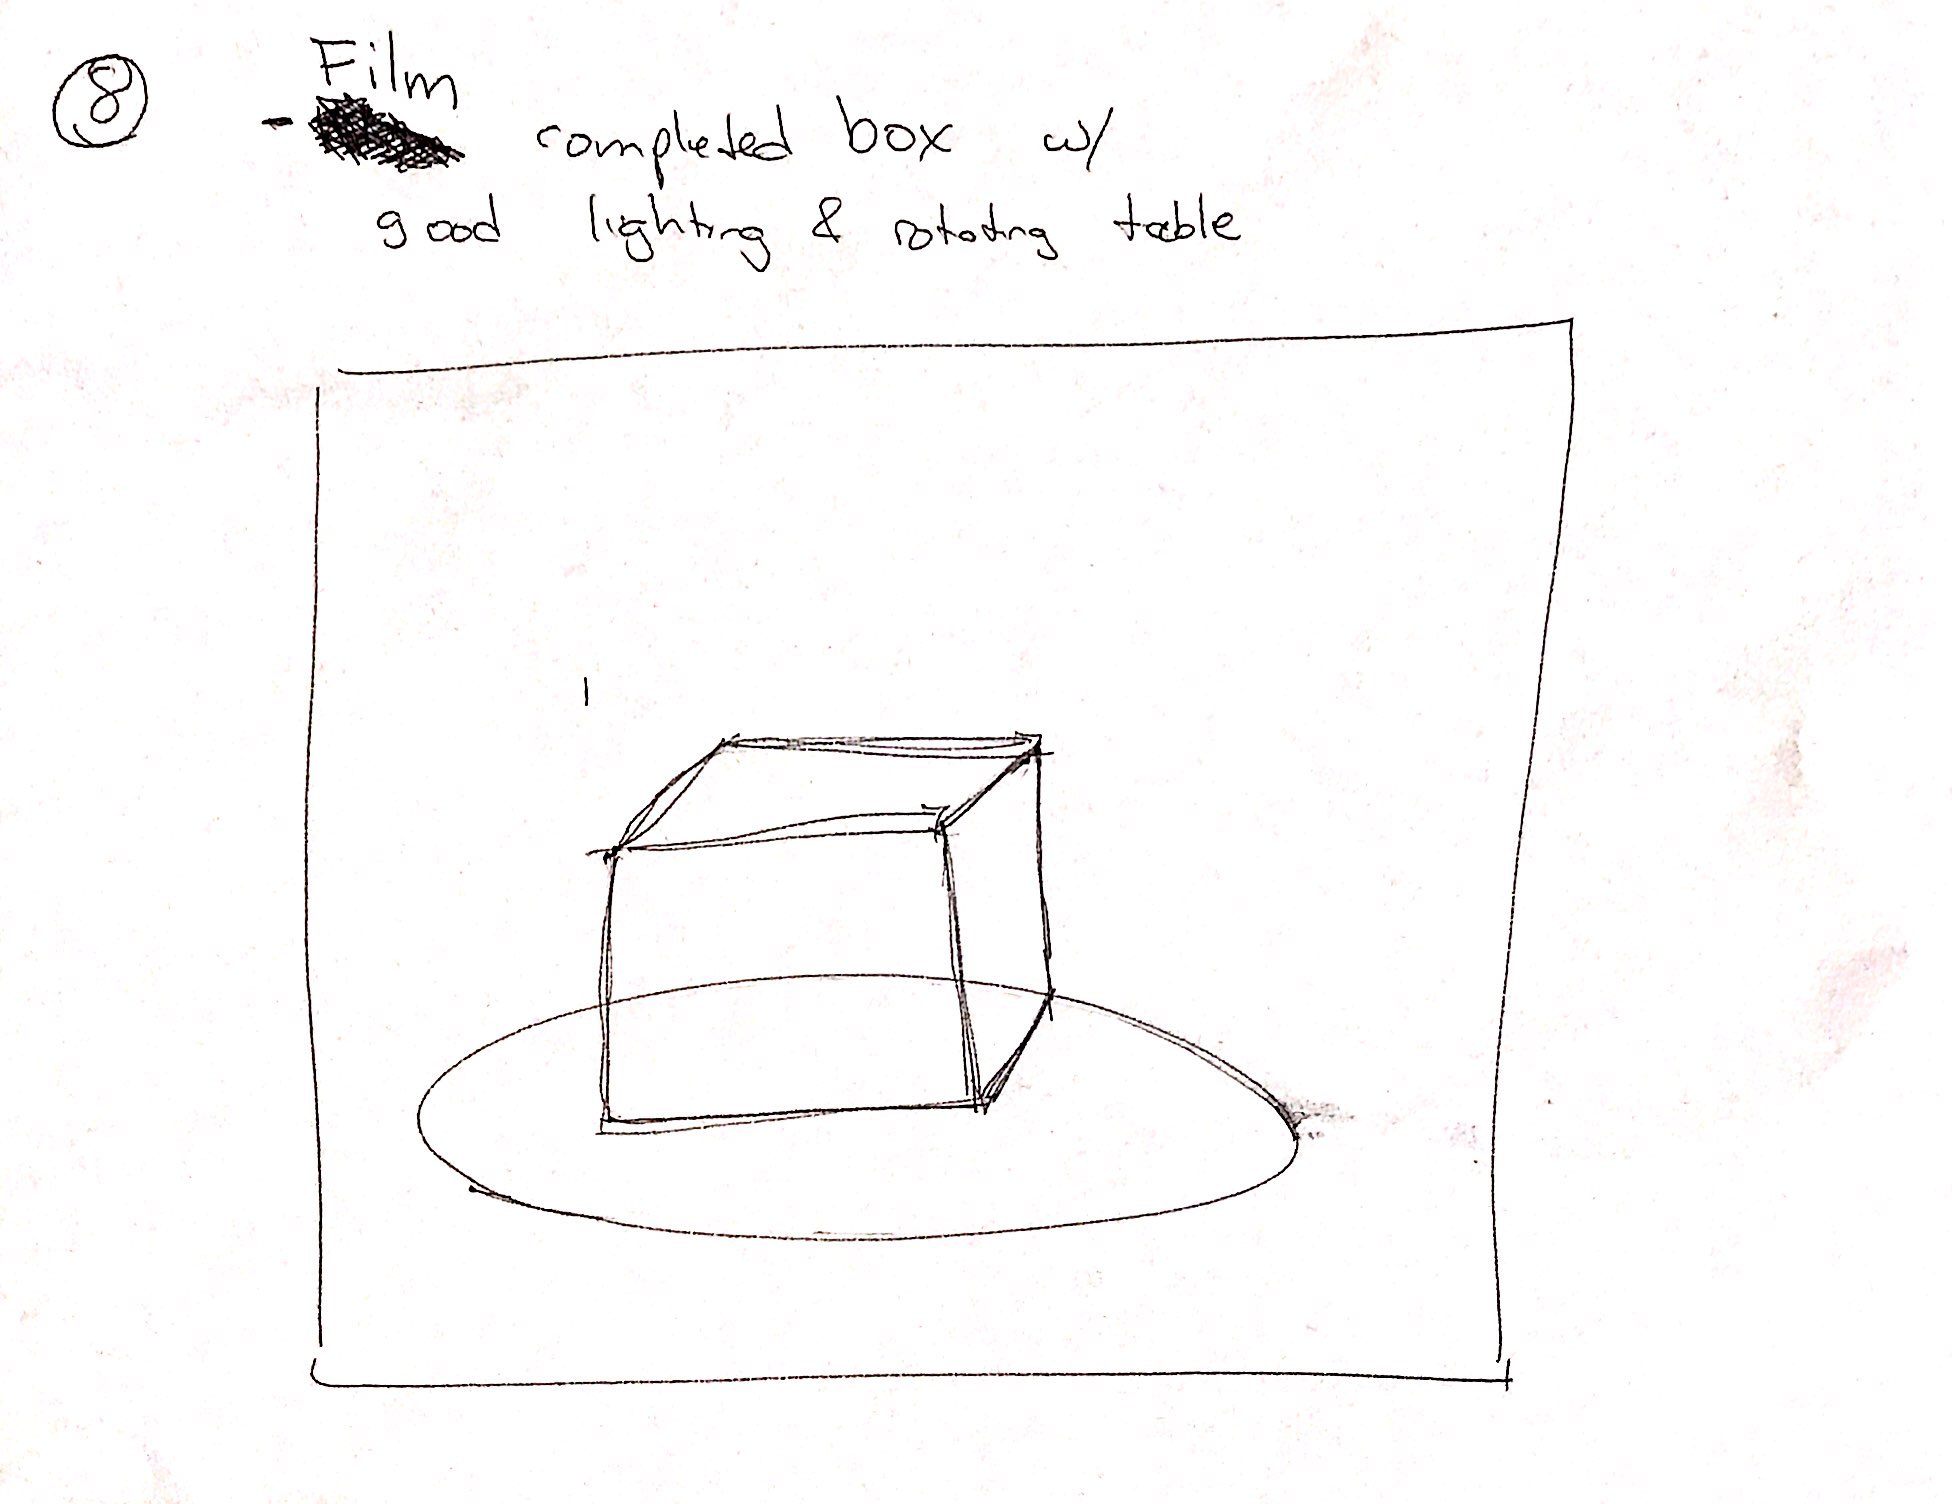 8
Film
- completed box w/
good lighting & rotating table